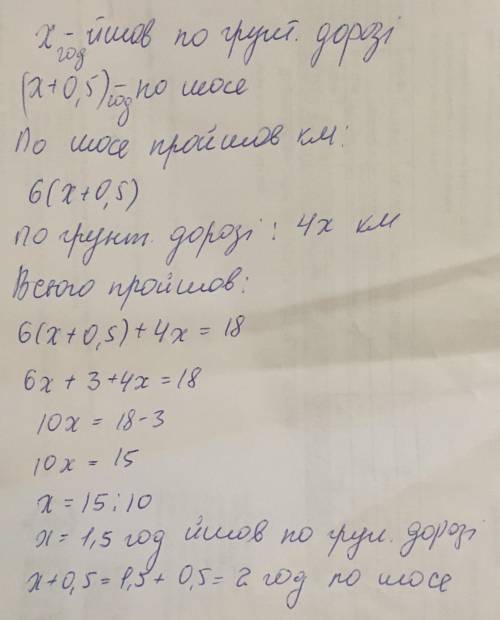 x год - йшов по грунт. дорозі
(x+0,5) год - по шосе
По шосе пройшов км:
6(x+0,5)
по грунт. дорозі : 4x км
Всього пройшов:
6(x+0,5)+4x = 18
6x + 3 +4x = 18
10x = 18-3
10x = 15
x = 15:10
x = 1,5 год йшов по грун. дорозі
x+0,5 = 1,5 + 0,5 = 2 год по шосе